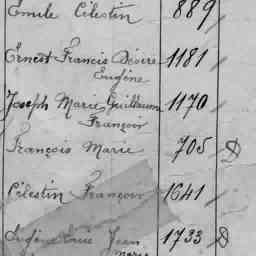 Emile Célestin 889
Ernest Francis Désiré 1181
Eugène
Joseph Marie Guillaume 1170
François
François Marie 705
Célestin François 1641
Eugène Jean 1733
Marie